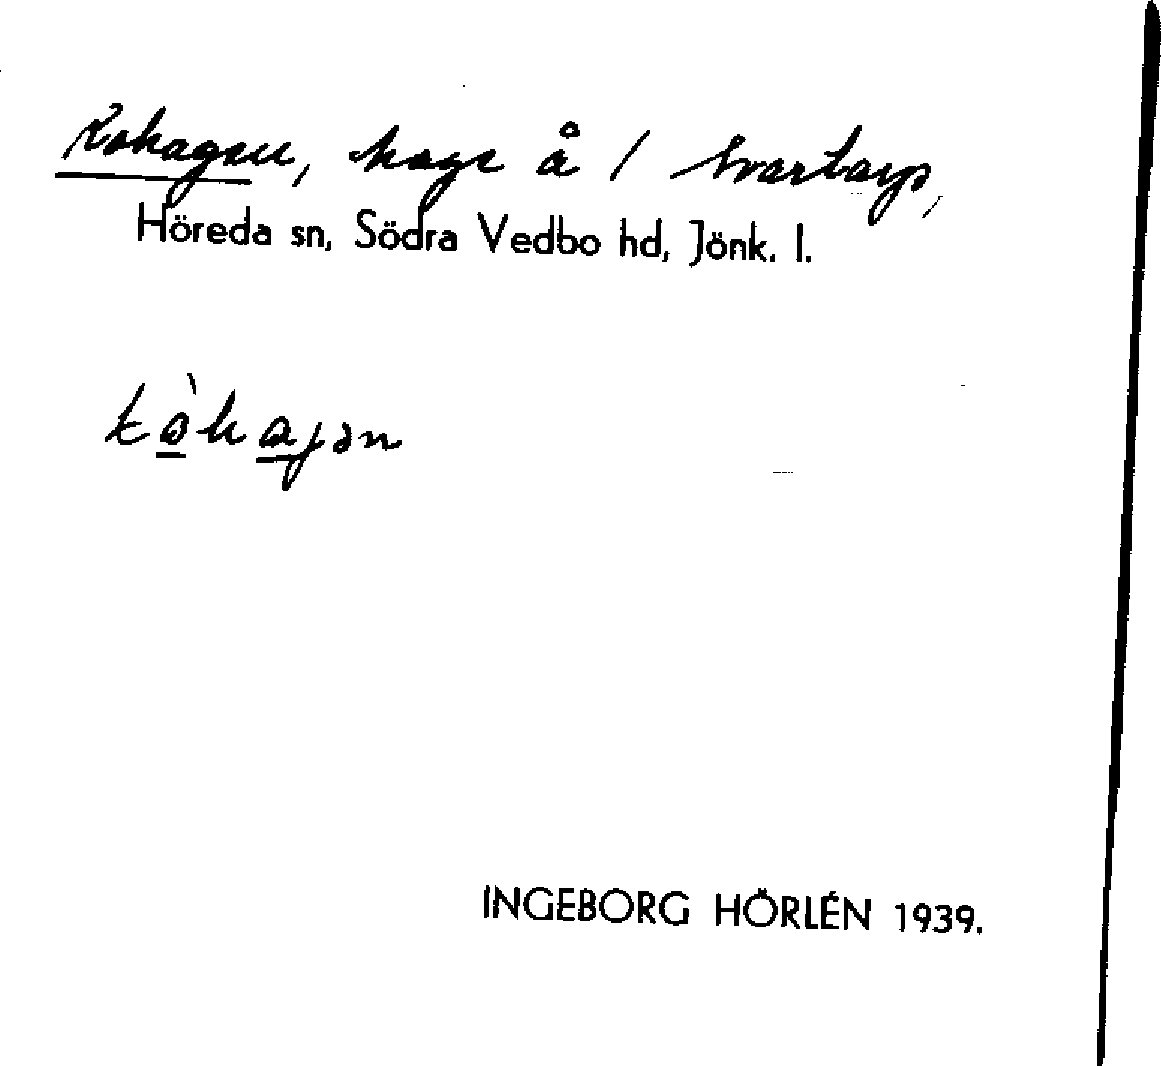 Kohagen, hage å / Svartarp,
Höreda sn, Södra Vedbo hd, Jönk. l.
kòhagən
INGEBORG HÖRLÉN 1939.